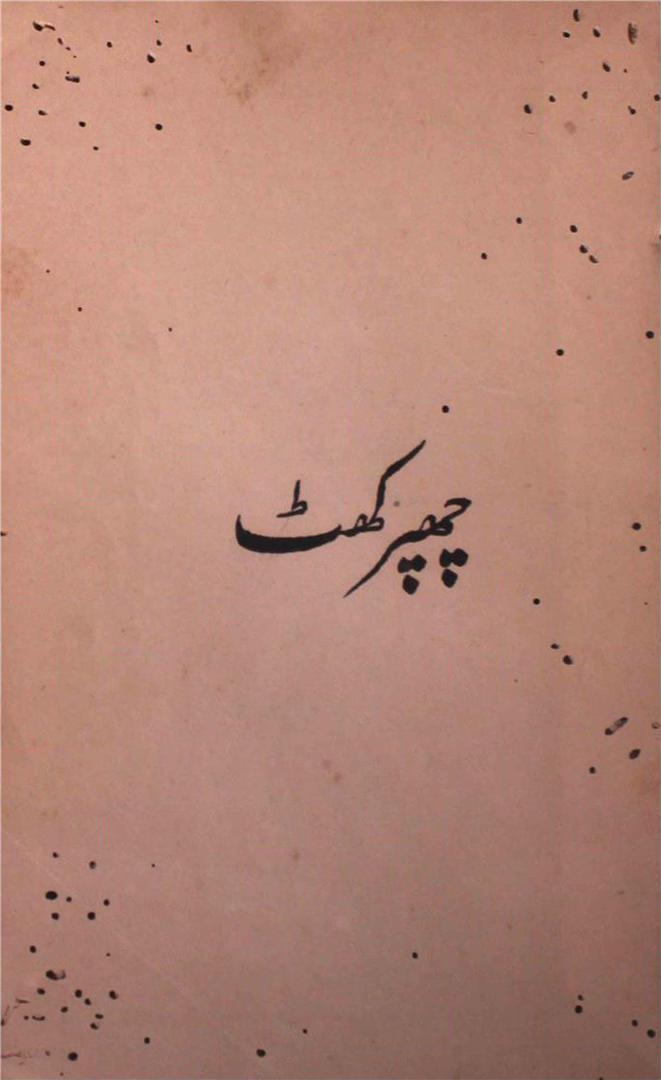 چھپر کھٹ